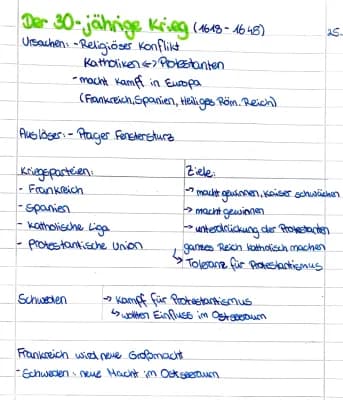 Der 30-jährige Krieg (1618-1648)
25.
Ursachen: - Religiöser Konflikt
Katholiken <-> Protestanten
- macht kampf in Europa
(Frankreich, Spanien, Heiliges Röm. Reich)
Auslöser: - Prager Fenstersturz
Kriegsparteien:
- Frankreich
- Spanien
- Katholische Liga
- Protestantische Union
Ziele:
-> macht gewinnen, Kaiser schwächen
-> macht gewinnen
-> unterdrückung der Protestanten
ganzes Reich katholisch machen
-> Toleranz für Protestantismus
Schweden -> Kampf für Protestantismus
↳ wollten Einfluss im Ostseeraum
Frankreich wird neue Großmacht
- Schweden: neue Macht im Ostseeraum